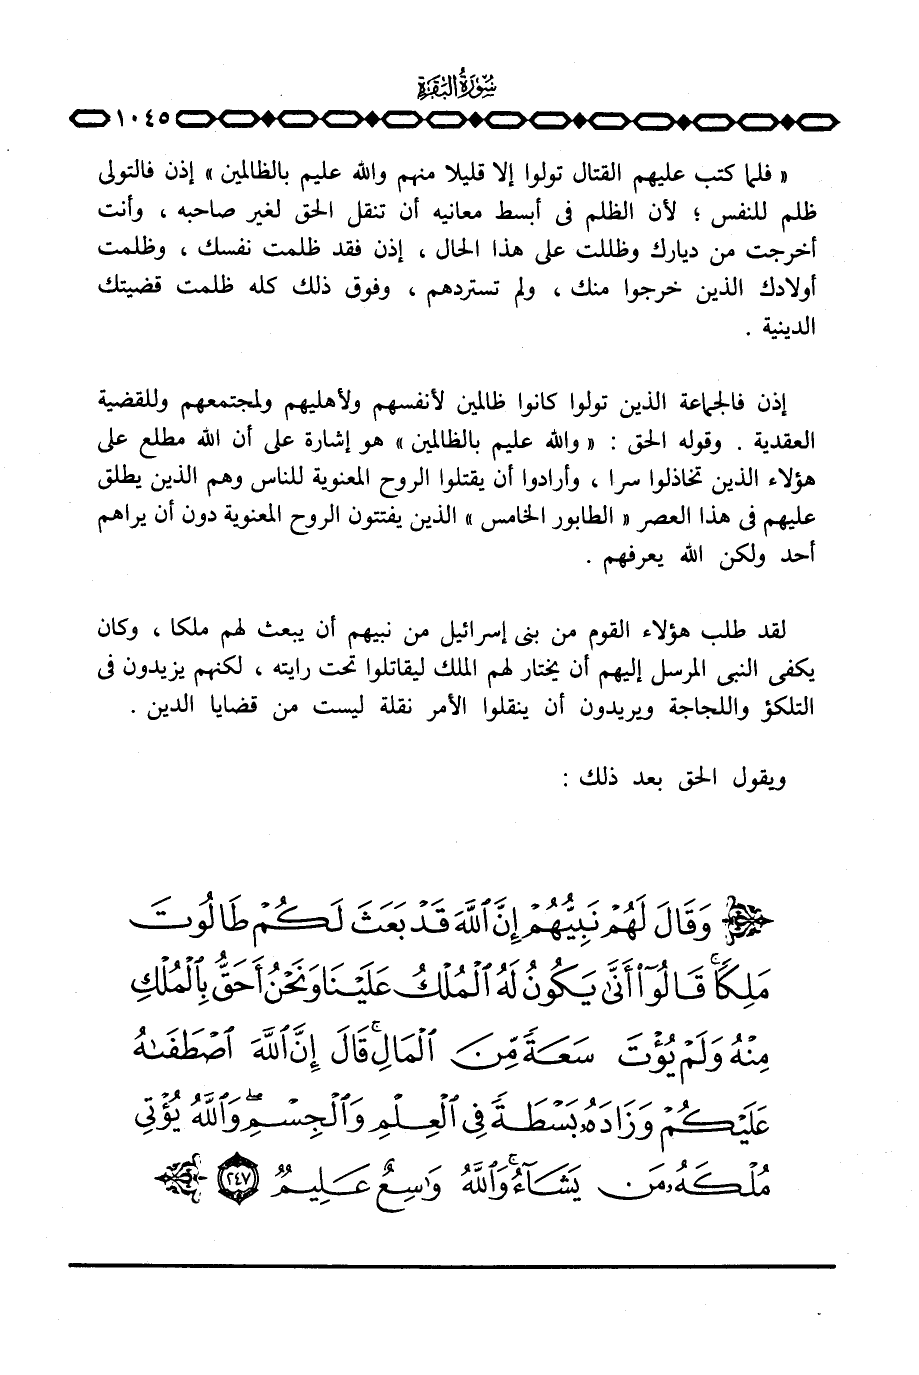 سُورَةُ البَقَرَةِ
١٠٤٥
« فلما كتب عليهم القتال تولوا إلا قليلا منهم والله عليم بالظالمين » إذن فالتولى
ظلم للنفس ؛ لأن الظلم فى أبسط معانيه أن تنقل الحق لغير صاحبه ، وأنت
أخرجت من ديارك وظللت على هذا الحال ، إذن فقد ظلمت نفسك ، وظلمت
أولادك الذين خرجوا منك ، ولم تستردهم ، وفوق ذلك كله ظلمت قضيتك
الدينية .
إذن فالجماعة الذين تولوا كانوا ظالمين لأنفسهم ولأهليهم ولمجتمعهم وللقضية
العقدية . وقوله الحق : « والله عليم بالظالمين » هو إشارة على أن الله مطلع على
هؤلاء الذين تخاذلوا سرا ، وأرادوا أن يقتلوا الروح المعنوية للناس وهم الذين يطلق
عليهم فى هذا العصر « الطابور الخامس » الذين يفتتون الروح المعنوية دون أن يراهم
أحد ولكن الله يعرفهم .
لقد طلب هؤلاء القوم من بنى إسرائيل من نبيهم أن يبعث لهم ملكا ، وكان
يكفى النبى المرسل إليهم أن يختار لهم الملك ليقاتلوا تحت رايته ، لكنهم يزيدون فى
التلكؤ واللجاجة ويريدون أن ينقلوا الأمر نقلة ليست من قضايا الدين .
ويقول الحق بعد ذلك :
وَقَالَ لَهُمْ نَبِيُّهُمْ إِنَّ ٱللَّهَ قَدْ بَعَثَ لَكُمْ طَالُوتَ
مَلِكًا ۚ قَالُوٓا۟ أَنَّىٰ يَكُونُ لَهُ ٱلْمُلْكُ عَلَيْنَا وَنَحْنُ أَحَقُّ بِٱلْمُلْكِ
مِنْهُ وَلَمْ يُؤْتَ سَعَةً مِّنَ ٱلْمَالِ ۚ قَالَ إِنَّ ٱللَّهَ ٱصْطَفَىٰهُ
عَلَيْكُمْ وَزَادَهُۥ بَسْطَةً فِى ٱلْعِلْمِ وَٱلْجِسْمِ ۖ وَٱللَّهُ يُؤْتِى
مُلْكَهُۥ مَن يَشَآءُ ۚ وَٱللَّهُ وَٰسِعٌ عَلِيمٌ ٢٤٧